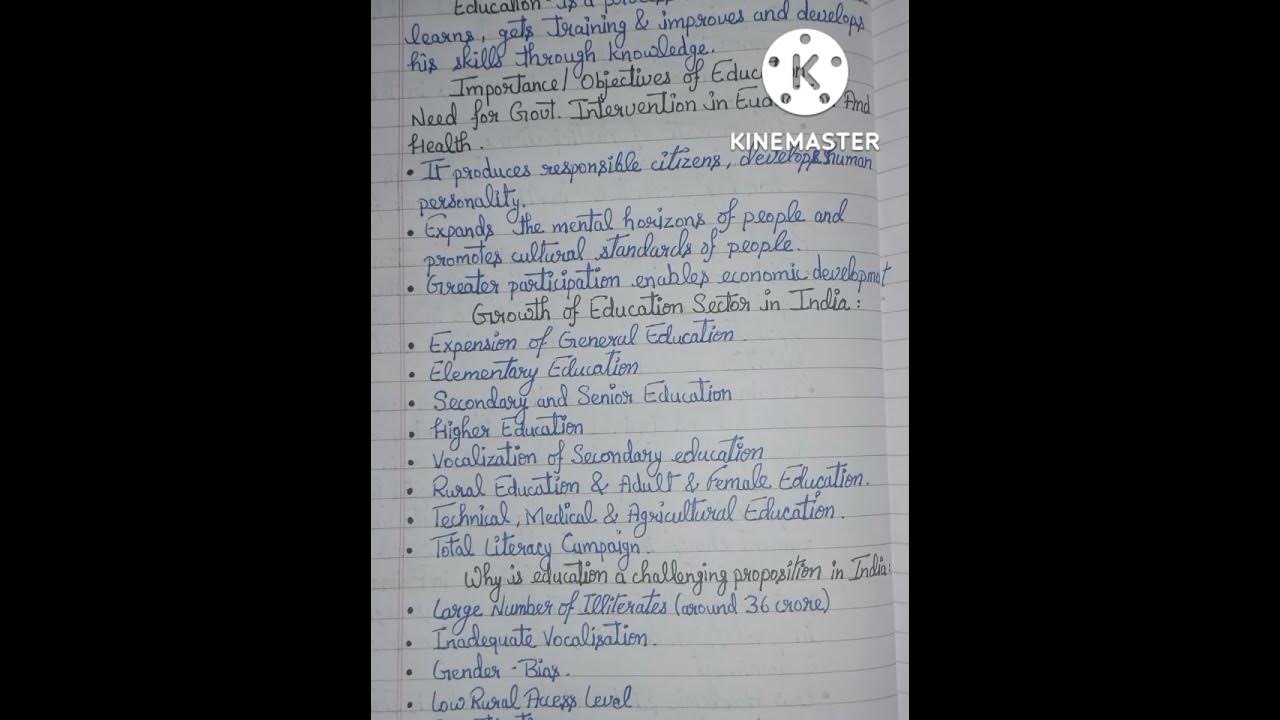 Education - is a process
learns, gets training & improves and develops
his skills through knowledge.
Importance/ Objectives of Educ
Need for Govt. Intervention in Eud And
Health.
• It produces responsible citizens, develops human
personality.
• Expands the mental horizons of people and
promotes cultural standards of people.
• Greater participation enables economic developmat
Growth of Education Sector in India:
• Expension of General Education.
• Elementary Education
• Secondary and Senior Education
• Higher Education
• Vocalization of Secondary education
• Rural Education & Adult & Female Education.
• Technical, Medical & Agricultural Education.
• Total Literacy Campaign.
Why is education a challenging proposition in India:
• Large Number of Illiterates (around 36 crore)
• Inadequate Vocalisation.
• Gender - Bias.
• Low Rural Access Level
K
KINEMASTER